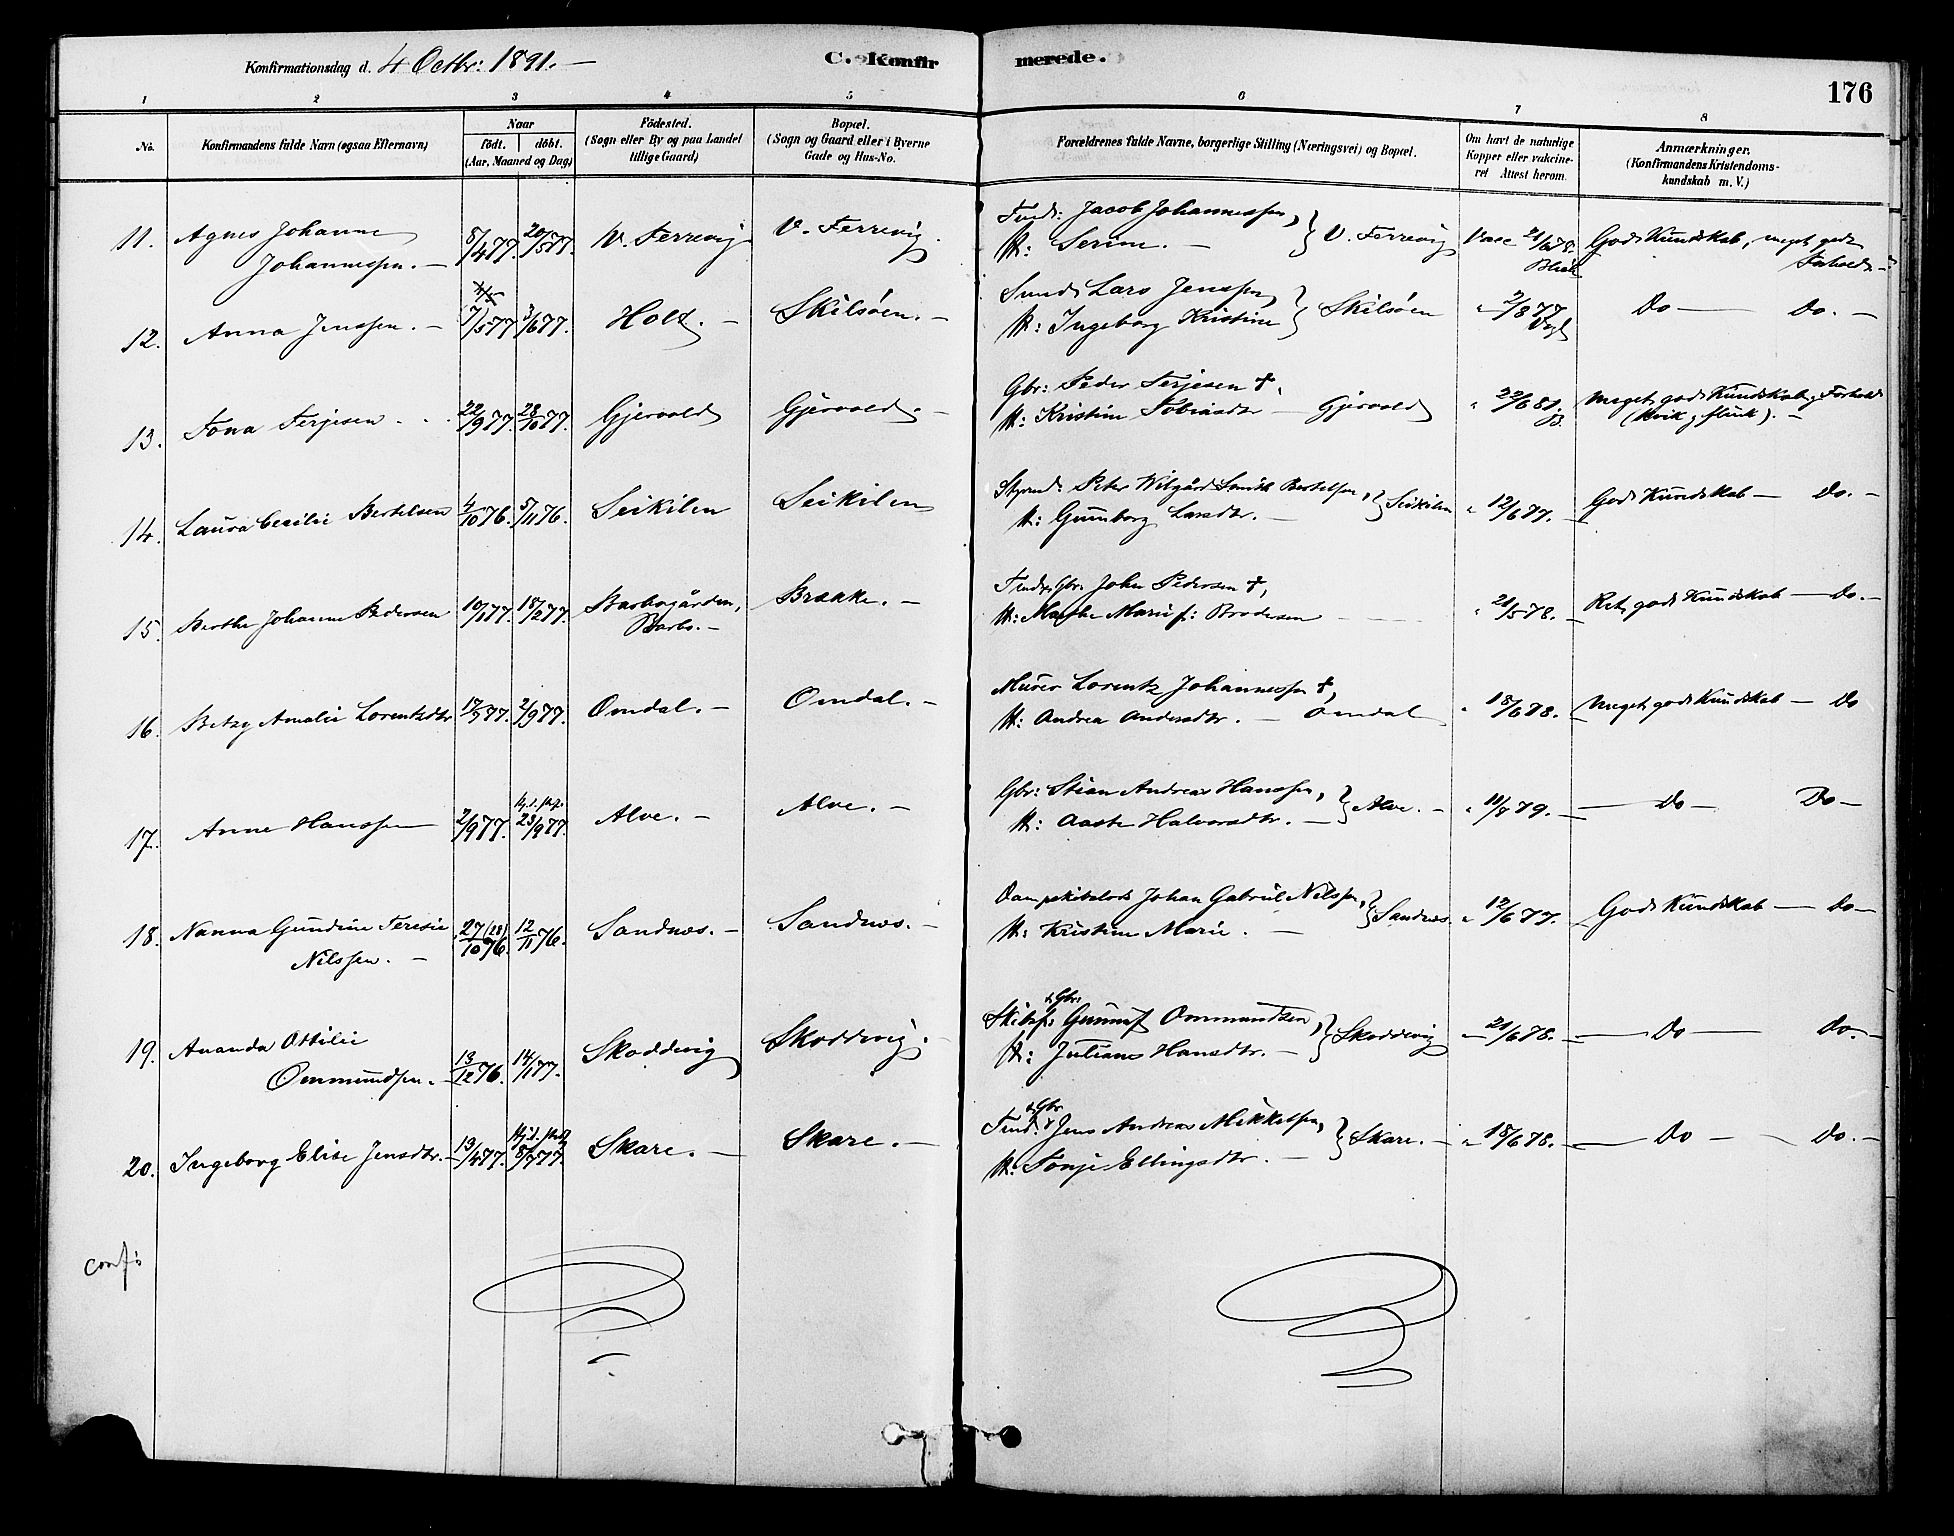 Konfirmationsdag d. 4 Octbr: 1891. —
C. Konfirmerede.
176
1 2 3 4 5 6 7 8
No.
Konfirmandens fulde Navn (ogsaa Efternavn)
Naar
födt. döbt.
(Aar, Maaned og Dag)
Födested.
(Sogn eller By og paa Landet
tillige Gaard)
Bopæl.
(Sogn og Gaard eller i Byerne
Gade og Hus-No.
Forældrenes fulde Navne, borgerlige Stilling (Næringsvei) og Bopæl.
Om havt de naturlige
Kopper eller vakcine-
ret Attest herom.
Anmærkninger.
(Konfirmandens Kristendoms-
kundskab m. V.)
11. Agnes Johanne
Johannessen. — 8/4 77. 20/5 77. V. Ferrevig V. Ferrevig.
Tind: Jacob Johannessen,
H: Serine. — } V. Ferrevig Vacc 21/6 78. God Kundskab, meget godt
Forhold —
12. Anna Jenssen. — 7/5 77 3/6 77. Holt. — Skilsöen. —
Smed Lars Jenssen,
H: Ingeborg Kristine } Skilsöen " 2/8 77 Do — Do. —
13. Tona Terjesen 22/9 77. 28/10 77. Gjervold Gjervold. —
Gbr: Peder Terjesen †,
H: Kristine Tobiasdtr — Gjervold " 22/6 81. Meget god Kundskab, Forhold
(Kvik, flink). —
14. Laura Cecilie Bertelsen 4/10 76. 5/11 76. Seikilen Seikilen
Styrmd: Peter Wilgård Smith Bertelsen,
H: Gunborg Larsdtr. — } Seikilen " 12/6 77. God Kundskab — Do. —
15. Berthe Johanne Pedersen 10/1 77. 18/2 77. Barbogården,
Barbo. — Brække. —
Tind & Gbr. John Pedersen †,
H: Marthe Marie f: Brodersen " 21/5 78. Ret god Kundskab — Do. —
16. Betzy Amalie Lorentzdtr 2/9 77. Omdal. — Omdal. —
Murer Lorentz Johannessen †,
H: Andrea Andersdtr. — Omdal " 18/6 78. Meget god Kundskab — Do
17. Anne Hanssen 2/9 77. 23/9 77. Alve. — Alve. —
Gbr: Stian Andreas Hanssen,
H: Aaste Halvorsdtr. — } Alve. — " 11/8 79. — Do — Do —
18. Nanna Gundine Teresie
Nilssen. — 27(28)/10 76. 12/11 76. Sandnæs. — Sandnæs. —
Dampskibslods Johan Gabriel Nilssen,
H: Kristine Marie. — } Sandnæs. " 12/6 77. God Kundskab — Do —
19. Ananda Ottilie
Ommundsen. — 13/12 76. 14/1 77. Skoddevig Skoddevig. —
& Gbr.
Skibsf: Gunuf Ommundsen,
H: Juliane Hansdtr. — } Skoddevig — 21/6 78. — Do — Do. —
20. Ingeborg Elise Jensdtr. — 13/4 77. 8/7 77. Skare. — Skare. —
& Gbr
Tind: Jens Andreas Mikkelsen,
H: Tonje Ellingsdtr. — } Skare. — " 18/6 78. — Do — Do. —
conf: